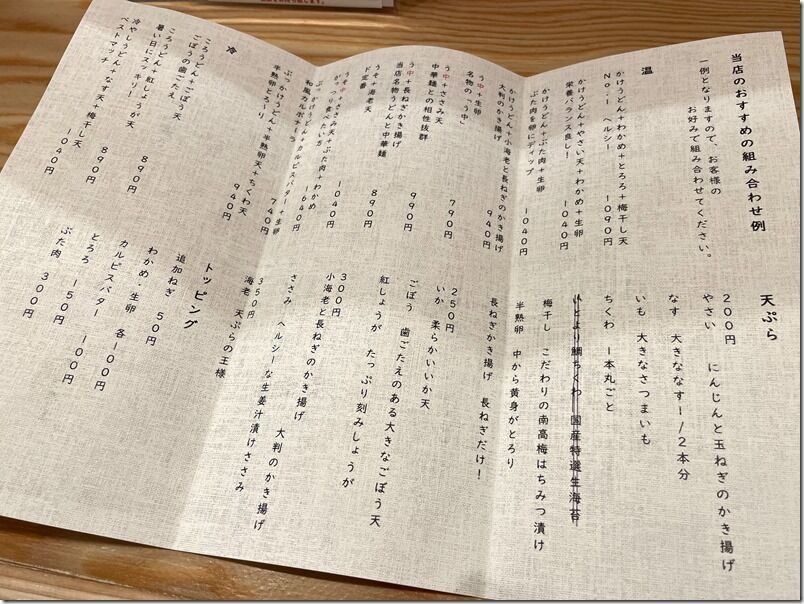 当店のおすすめの組み合わせ例
一例となりますので、お客様の
お好みで組み合わせてください。
温
かけうどん+わかめ+とろろ+梅干し天
No.1 ヘルシー 1090円
かけうどん+やさい天+わかめ+生卵
栄養バランス良し! 1040円
かけうどん+ぶた肉+生卵
ぶた肉を卵にディップ 1040円
かけうどん+小海老と長ねぎのかき揚げ
大判のかき揚げ 940円
う中+生卵
名物の「う中」 790円
う中+ささみ天
中華麺との相性抜群 990円
う中+長ねぎかき揚げ
当店名物うどんと中華麺 990円
うそ+海老天
ド定番 890円
うそ中+ささみ天+ぶた肉+わかめ
がっつり食べたい方 1640円
ぶっかけうどん+カルピスバター+生卵
和風カルボナーラ 1040円
冷
ぶっかけうどん+半熟卵天+ちくわ天
半熟卵とろーり 940円
ころうどん+ごぼう天
ごぼうの歯ごたえ 740円
ころうどん+紅しょうが天
暑い日にスッキリ! 890円
冷やしうどん+なす天+梅干し天
ベストマッチ 1040円
天ぷら
200円
やさい にんじんと玉ねぎのかき揚げ
なす 大きななす1/2本分
いも 大きなさつまいも
ちくわ 1本丸ごと
いとより鯛ちくわ 国産特選生海苔
梅干し こだわりの南高梅はちみつ漬け
半熟卵 中から黄身がとろり
長ねぎかき揚げ 長ねぎだけ!
250円
いか 柔らかいいか天
ごぼう 歯ごたえのある大きなごぼう天
紅しょうが たっぷり刻みしょうが
300円
小海老と長ねぎのかき揚げ 大判のかき揚げ
ささみ ヘルシーな生姜汁漬けささみ
350円
海老 天ぷらの王様
トッピング
追加ねぎ 50円
わかめ・生卵 各100円
カルピスバター 100円
とろろ 150円
ぶた肉 300円